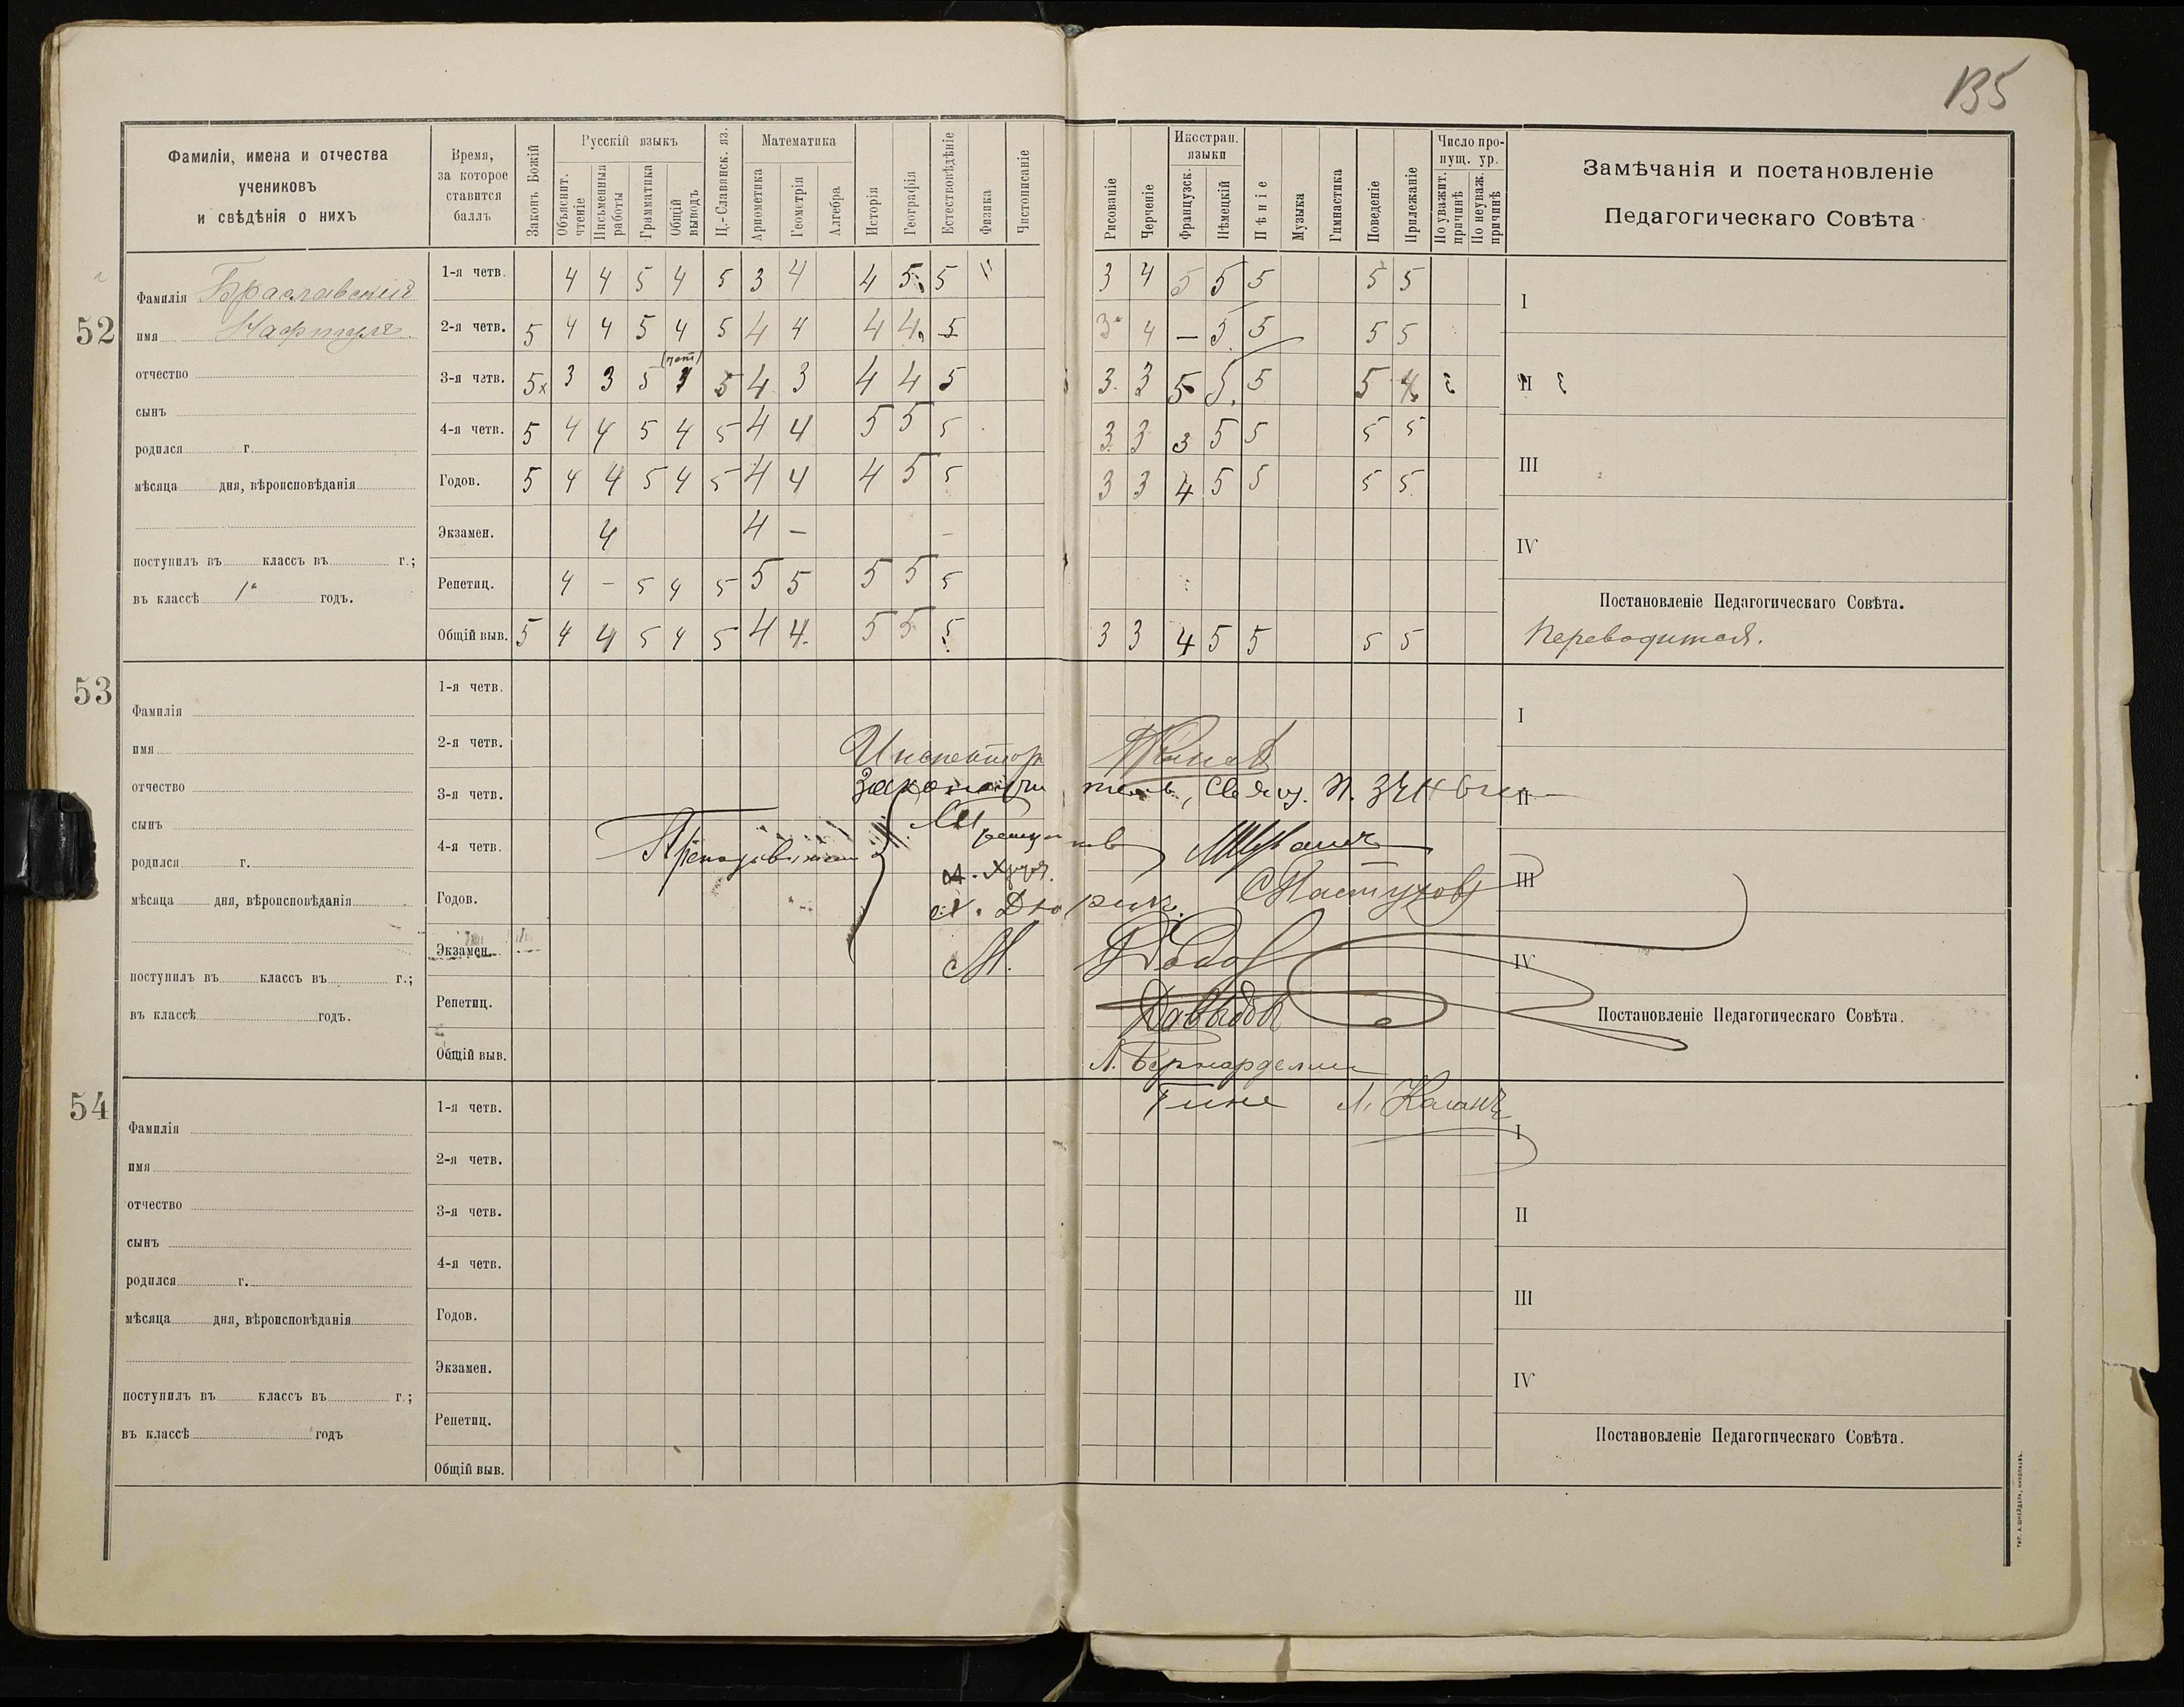 135
Фамиліи, имена и отчества
учениковъ
и свѣдѣнія о нихъ
Время,
за которое
ставится
баллъ
Законъ Божій
Русскій языкъ
Объяснит. чтеніе
Письменныя работы
Грамматика
Общій выводъ
Ц.-Славянск. яз.
Математика
Ариѳметика
Геометрія
Алгебра
Исторія
Географія
Естествовѣдѣніе
Физика
Чистописаніе
Рисованіе
Черченіе
Иностран. языки
Французск.
Нѣмецкій
Пѣніе
Музыка
Гимнастика
Поведеніе
Прилежаніе
Число пропущ. ур.
По уважит. причинѣ
По неуваж. причинѣ
Замѣчанія и постановленіе
Педагогическаго Совѣта
52
Фамилія Браславскій
имя Нафтулъ
отчество
сынъ
родился г.
мѣсяца дня, вѣроисповѣданія
поступилъ въ классъ въ г.;
въ классѣ 1й годъ.
1-я четв. 4 4 5 4 5 3 4 4 5 5 " 3 4 5 5 5 5 5
2-я четв. 5 4 4 5 4 5 4 4 4 4 5 3 4 — 5 5 5 5
3-я четв. 5 3 3 5 3 5 4 3 4 4 5 3 3 5 5 5 5 4
4-я четв. 5 4 4 5 4 5 4 4 5 5 5 3 3 3 5 5 5 5
Годов. 5 4 4 5 4 5 4 4 4 5 5 3 3 4 5 5 5 5
Экзамен. 4 4 — —
Репетиц. 4 — 5 4 5 5 5 5 5 5
Общій выв. 5 4 4 5 4 5 4 4 5 5 5 3 3 4 5 5 5 5
I
II
III
IV
Постановленіе Педагогическаго Совѣта.
Переводится.
53
Фамилія
имя
отчество
сынъ
родился г.
мѣсяца дня, вѣроисповѣданія
поступилъ въ классъ въ г.;
въ классѣ годъ.
1-я четв.
2-я четв.
3-я четв.
4-я четв.
Годов.
Экзамен.
Репетиц.
Общій выв.
Инспектор
Законоучитель, Свящ. П.
Преподаватели
С Пастухов
М. Попов
Давыдов
Л. Бернарделли
Гине Л. Каганъ
I
II
III
IV
Постановленіе Педагогическаго Совѣта.
54
Фамилія
имя
отчество
сынъ
родился г.
мѣсяца дня, вѣроисповѣданія
поступилъ въ классъ въ г.;
въ классѣ годъ
1-я четв.
2-я четв.
3-я четв.
4-я четв.
Годов.
Экзамен.
Репетиц.
Общій выв.
I
II
III
IV
Постановленіе Педагогическаго Совѣта.
ТИП. А. ШНЕЙДЕРЪ, НИКОЛАЕВЪ.